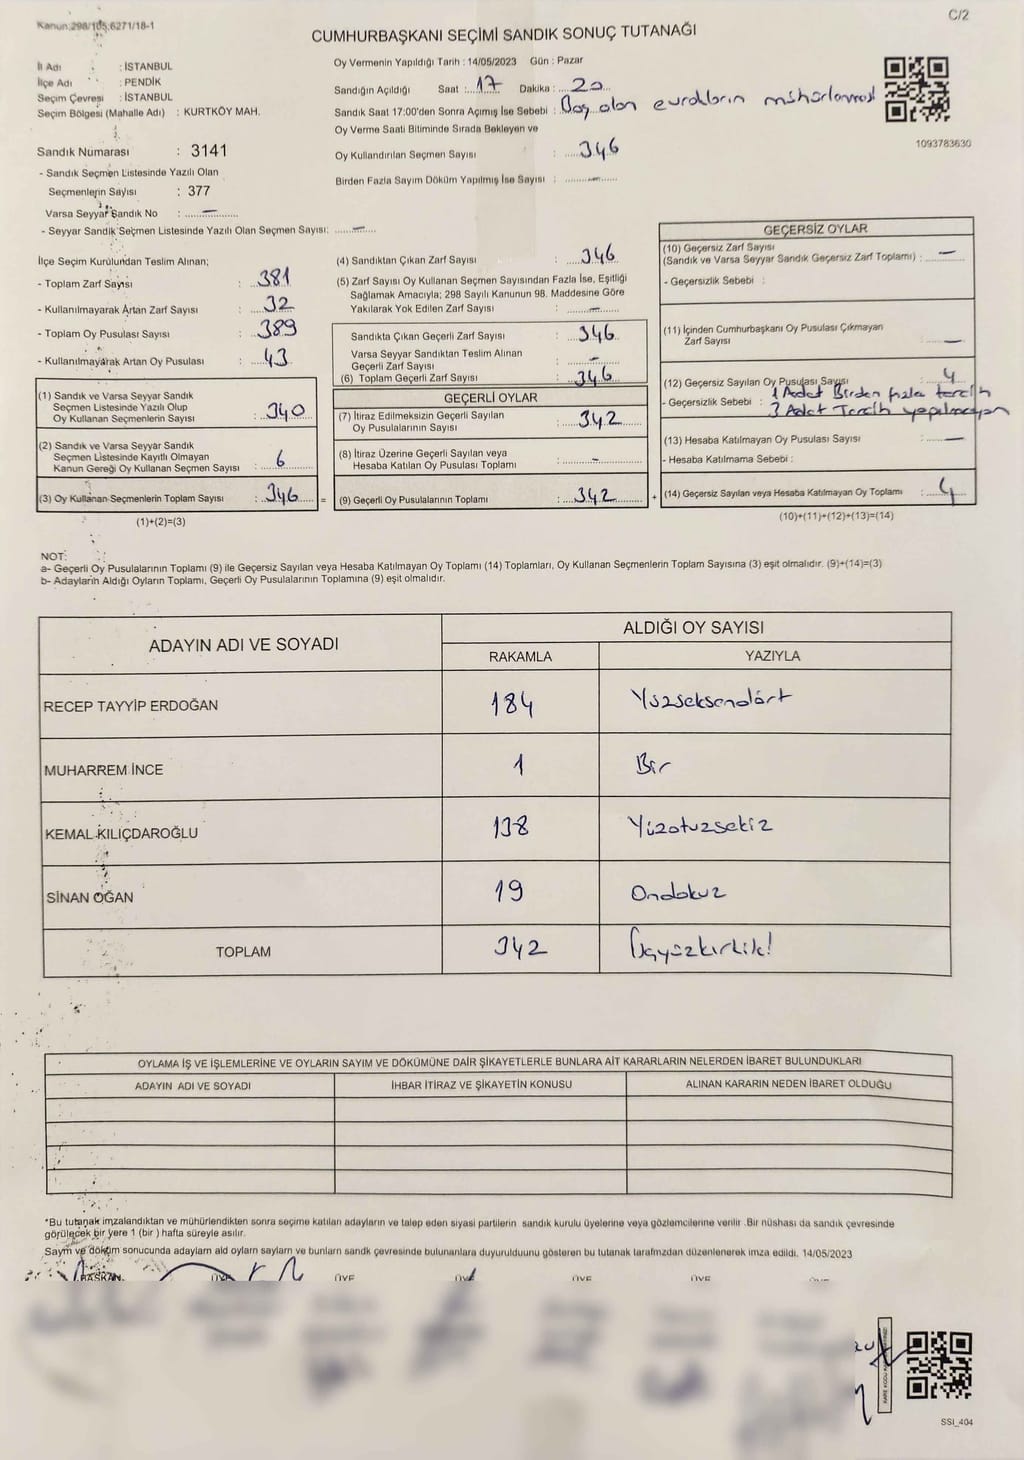 Kanun:298/105,6271/18-1
C/2
CUMHURBAŞKANI SEÇİMİ SANDIK SONUÇ TUTANAĞI
İl Adı : İSTANBUL
İlçe Adı : PENDİK
Seçim Çevresi : İSTANBUL
Seçim Bölgesi (Mahalle Adı) : KURTKÖY MAH.
Oy Vermenin Yapıldığı Tarih : 14/05/2023 Gün : Pazar
Sandığın Açıldığı Saat : 17 Dakika : 20
Sandık Saat 17:00'den Sonra Açımış İse Sebebi : Boş olan evrakların mühürlenmesi
Oy Verme Saati Bitiminde Sırada Bekleyen ve
Oy Kullandırılan Seçmen Sayısı : 346
Birden Fazla Sayım Döküm Yapılmış İse Sayısı : -
1093783630
Sandık Numarası : 3141
- Sandık Seçmen Listesinde Yazılı Olan
Seçmenlerin Sayısı : 377
Varsa Seyyar Sandık No : -
- Seyyar Sandık Seçmen Listesinde Yazılı Olan Seçmen Sayısı: -
İlçe Seçim Kurulundan Teslim Alınan;
- Toplam Zarf Sayısı : 381
- Kullanılmayarak Artan Zarf Sayısı : 32
- Toplam Oy Pusulası Sayısı : 389
- Kullanılmayarak Artan Oy Pusulası : 43
(1) Sandık ve Varsa Seyyar Sandık
Seçmen Listesinde Yazılı Olup
Oy Kullanan Seçmenlerin Sayısı : 340
(2) Sandık ve Varsa Seyyar Sandık
Seçmen Listesinde Kayıtlı Olmayan
Kanun Gereği Oy Kullanan Seçmen Sayısı : 6
(3) Oy Kullanan Seçmenlerin Toplam Sayısı : 346 =
(1)+(2)=(3)
(4) Sandıktan Çıkan Zarf Sayısı : 346
(5) Zarf Sayısı Oy Kullanan Seçmen Sayısından Fazla İse, Eşitliği
Sağlamak Amacıyla; 298 Sayılı Kanunun 98. Maddesine Göre
Yakılarak Yok Edilen Zarf Sayısı : -
Sandıkta Çıkan Geçerli Zarf Sayısı : 346
Varsa Seyyar Sandıktan Teslim Alınan
Geçerli Zarf Sayısı : -
(6) Toplam Geçerli Zarf Sayısı : 346
GEÇERLİ OYLAR
(7) İtiraz Edilmeksizin Geçerli Sayılan
Oy Pusulalarının Sayısı : 342
(8) İtiraz Üzerine Geçerli Sayılan veya
Hesaba Katılan Oy Pusulası Toplamı : -
(9) Geçerli Oy Pusulalarının Toplamı : 342 +
GEÇERSİZ OYLAR
(10) Geçersiz Zarf Sayısı
(Sandık ve Varsa Seyyar Sandık Geçersiz Zarf Toplamı) : -
- Geçersizlik Sebebi :
(11) İçinden Cumhurbaşkanı Oy Pusulası Çıkmayan
Zarf Sayısı -
(12) Geçersiz Sayılan Oy Pusulası Sayısı 4
- Geçersizlik Sebebi : 1 Adet Birden fazla tercih
3 Adet Tercih yapılmayan
(13) Hesaba Katılmayan Oy Pusulası Sayısı -
- Hesaba Katılmama Sebebi :
(14) Geçersiz Sayılan veya Hesaba Katılmayan Oy Toplamı : 4
(10)+(11)+(12)+(13)=(14)
NOT:
a- Geçerli Oy Pusulalarının Toplamı (9) ile Geçersiz Sayılan veya Hesaba Katılmayan Oy Toplamı (14) Toplamları, Oy Kullanan Seçmenlerin Toplam Sayısına (3) eşit olmalıdır. (9)+(14)=(3)
b- Adayların Aldığı Oyların Toplamı, Geçerli Oy Pusulalarının Toplamına (9) eşit olmalıdır.
ADAYIN ADI VE SOYADI ALDIĞI OY SAYISI
RAKAMLA YAZIYLA
RECEP TAYYİP ERDOĞAN 184 Yüzseksendört
MUHARREM İNCE 1 Bir
KEMAL KILIÇDAROĞLU 138 Yüzotuzsekiz
SİNAN OĞAN 19 Ondokuz
TOPLAM 342 Üçyüzkırkiki
OYLAMA İŞ VE İŞLEMLERİNE VE OYLARIN SAYIM VE DÖKÜMÜNE DAİR ŞİKAYETLERLE BUNLARA AİT KARARLARIN NELERDEN İBARET BULUNDUKLARI
ADAYIN ADI VE SOYADI İHBAR İTİRAZ VE ŞİKAYETİN KONUSU ALINAN KARARIN NEDEN İBARET OLDUĞU
*Bu tutanak imzalandıktan ve mühürlendikten sonra seçime katılan adayların ve talep eden siyasi partilerin sandık kurulu üyelerine veya gözlemcilerine verilir .Bir nüshası da sandık çevresinde
görülecek bir yere 1 (bir ) hafta süreyle asılır.
Sayım ve döküm sonucunda adaylarn ald oylarn saylarn ve bunlarn sandk çevresinde bulunanlara duyurulduunu gösteren bu tutanak tarafmzdan düzenlenerek imza edildi. 14/05/2023
BAŞKAN ÜYE ÜYE ÜYE ÜYE ÜYE ÜYE
SSI_404